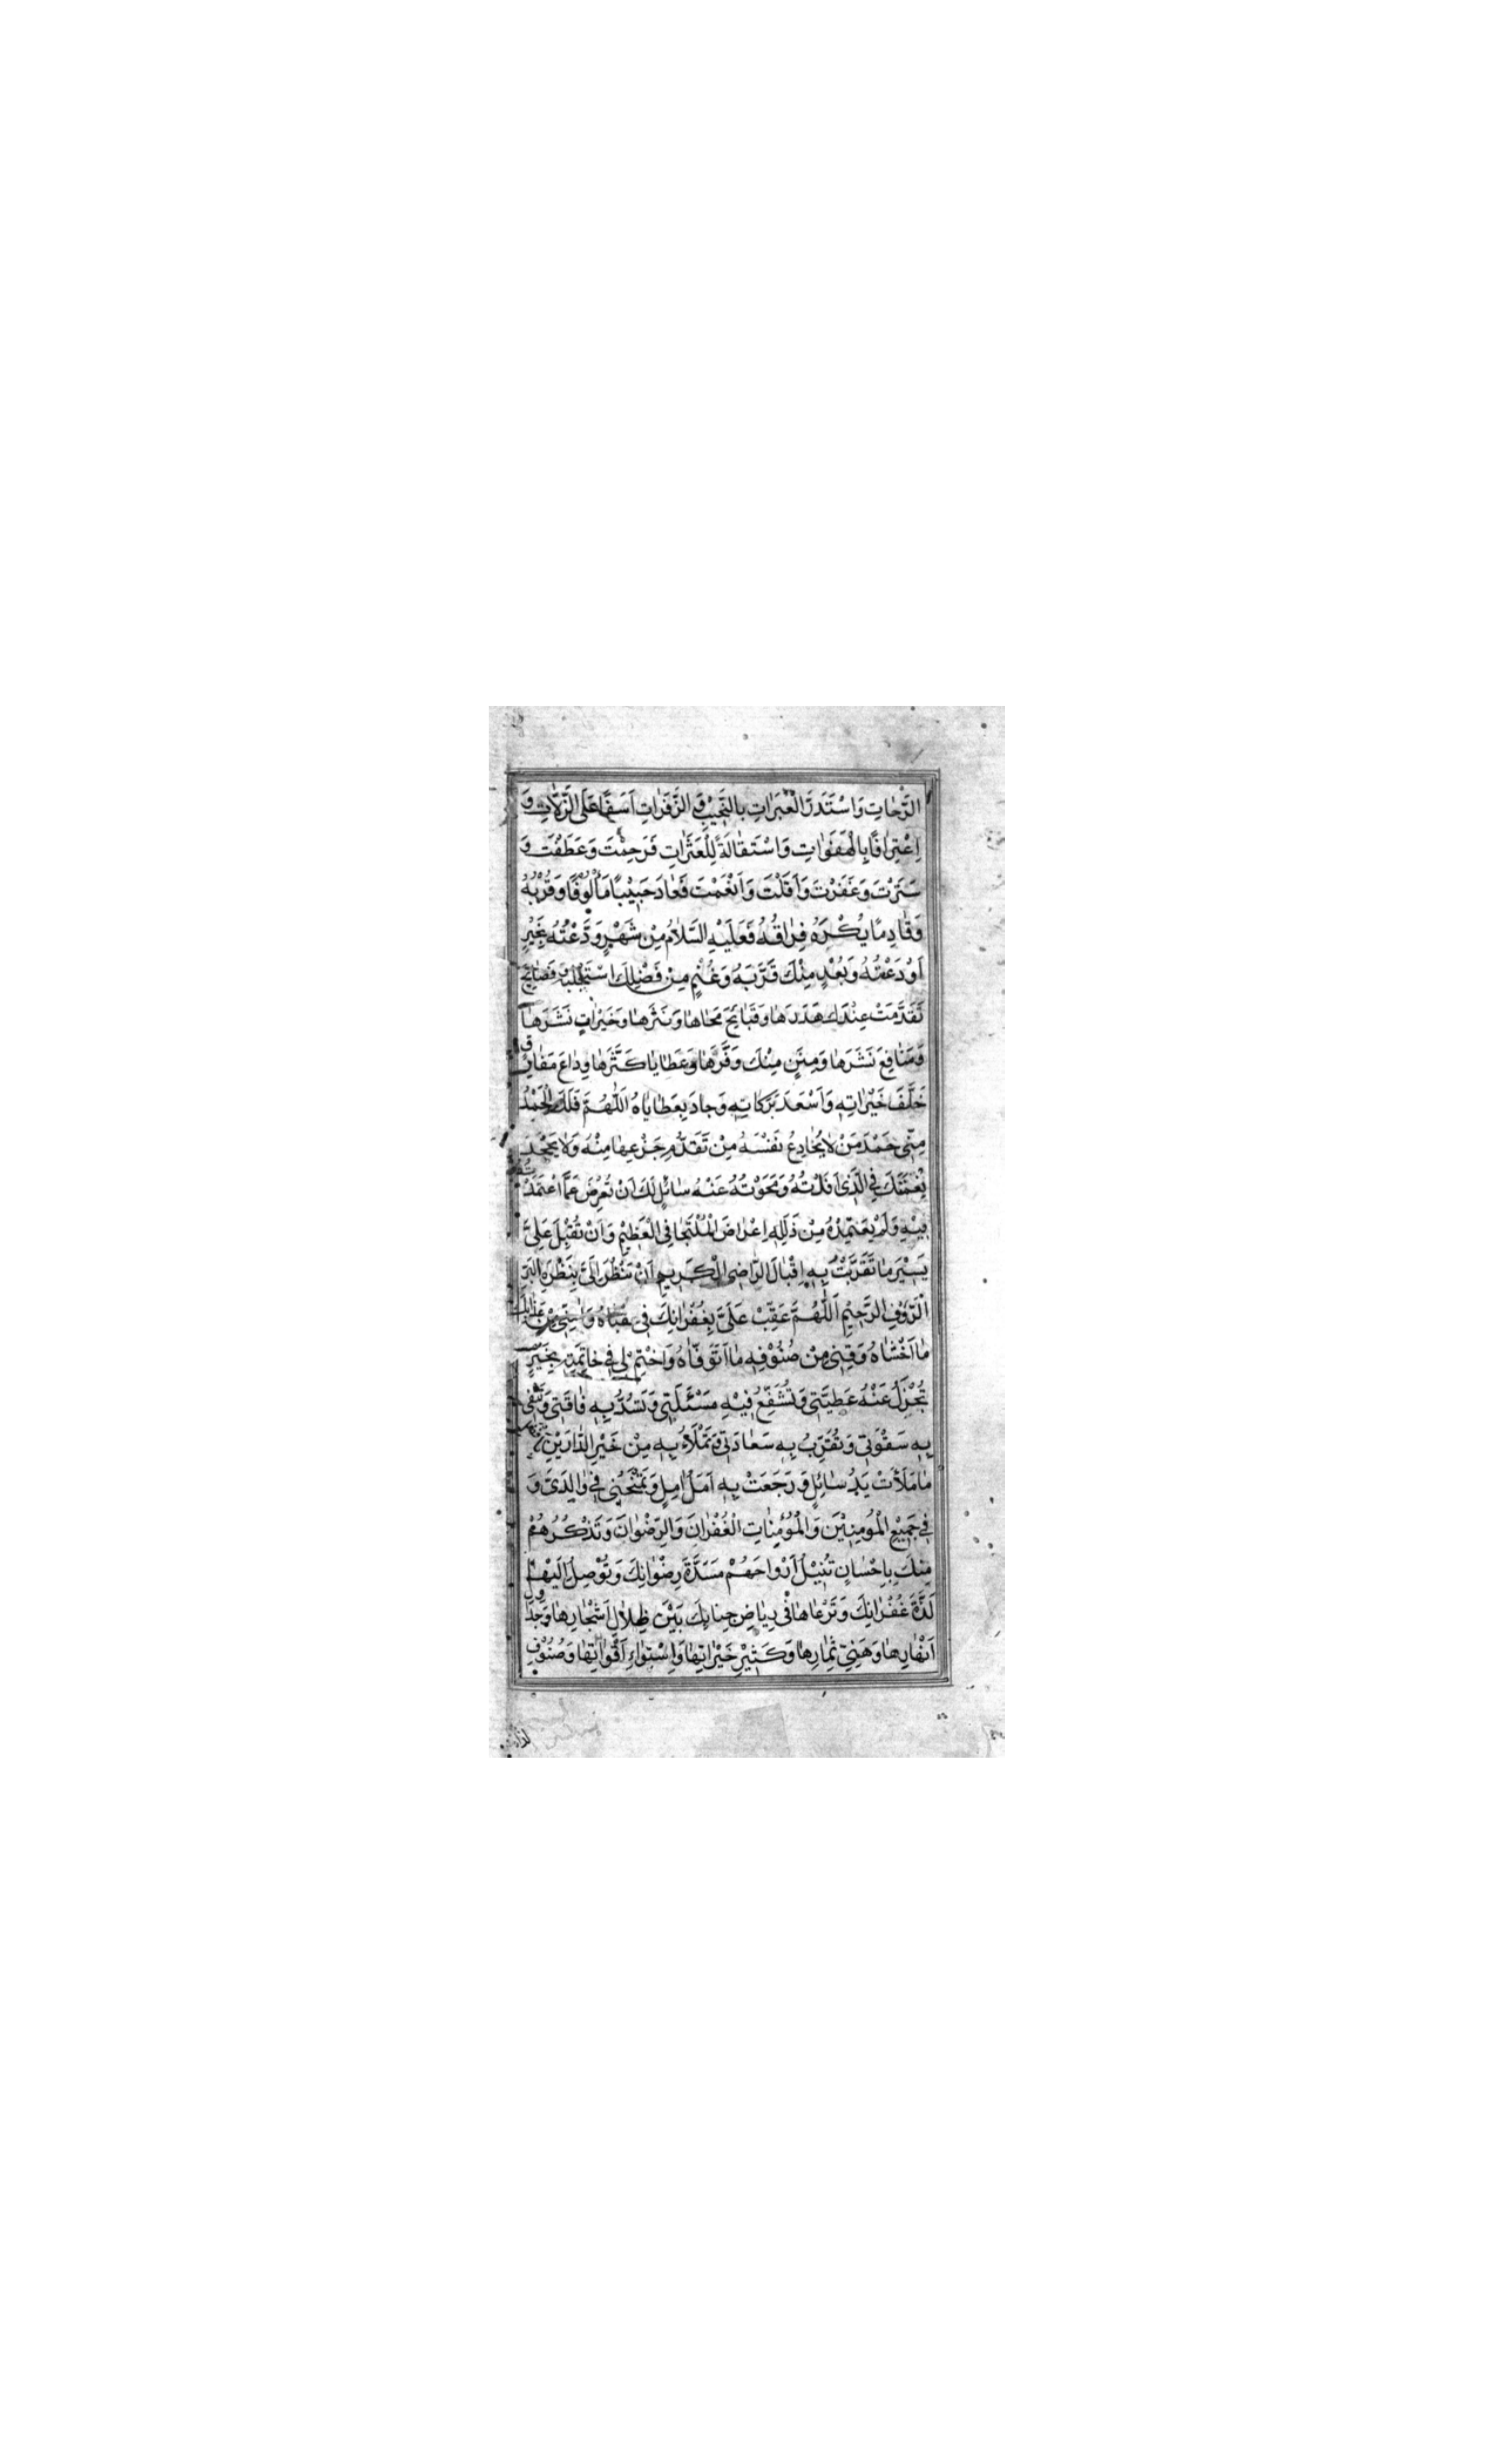 الرَّحَمَاتِ وَاسْتَدَرَّ الْعَبَرَاتِ بِالنَّحِيبِ وَ الزَّفَرَاتِ اَسَفًا عَلَى الزَّلَّاتِ وَ
اِعْتِرَافًا بِالْهَفَوَاتِ وَاسْتِقَالَةً لِلْعَثَرَاتِ فَرَحِمْتَ وَعَطَفْتَ وَ
سَتَرْتَ وَغَفَرْتَ وَاَقَلْتَ وَاَنْعَمْتَ فَعَادَ حَبِيْبًا مَاْلُوْفًا وَقُرْبُهُ
وَقَادِمًا يُكْرَهُ فِرَاقُهُ فَعَلَيْهِ السَّلَامُ مِنْ شَهْرٍ وَدَّعْتُهُ بِخَيْرٍ
اَوْدَعْتُهُ وَبُعْدٍ مِنْكَ قَرَّبَهُ وَغُنْمٍ مِنْ فَضْلِكَ اسْتَجْلَبَهُ وَفَضَايِحَ
تَقَدَّمَتْ عِنْدَكَ هَدَرَهَا وَقَبَايِحَ مَحَاهَا وَنَثَرَهَا وَخَيْرَاتٍ نَشَرَهَا
وَمَنَافِعَ نَشَرَهَا وَمِنَنٍ مِنْكَ وَفَّرَهَا وَعَطَايَا كَثَّرَهَا وِدَاعَ مُفَارِقٍ
خَلَّفَ خَيْرَاتِهِ وَاَسْعَدَ بَرَكَاتِهِ وَجَادَ بِعَطَايَاهُ اَللّٰهُمَّ فَلَكَ الْحَمْدُ
مِنِّي حَمْدَ مَنْ لَا يُخَادِعُ نَفْسَهُ مِنْ تَقَدُّمِ جَزَعِهَا مِنْهُ وَلَا يَجْحَدُ
نِعْمَتَكَ فِي الَّذِي اَفَدْتَهُ وَمَحَوْتَهُ عَنْهُ سَائِلٍ لَكَ اَنْ تُعْرِضَ عَمَّا اعْتَمَدْتُهُ
فِيْهِ وَلَمْ يَعْتَمِدْهُ مِنْ ذَلَلِهِ اِعْرَاضَ الْمُتَجَافِي الْعَظِيْمِ وَاَنْ تُقْبِلَ عَلَى
يَسِيْرِ مَا تَقَرَّبْتُ بِهِ اِقْبَالَ الرَّاضِي الْكَرِيمِ اَنْ تَنْظُرَ اِلَيَّ بِنَظْرَةِ الْبَرِّ
الرَّؤُفِ الرَّحِيْمِ اَللّٰهُمَّ عَقِّبْ عَلَيَّ بِغُفْرَانِكَ فِي عُقْبَاهُ وَاٰمِنِّي مِنْ عَذَابِكَ
مَا اَخْشَاهُ وَقِنِي مِنْ صُنُوْفِهِ مَا اَتَوَقَّاهُ وَاخْتِمْ لِي فِي خَاتِمَتِهِ بِخَيْرٍ
تُجْزِلُ عَنْهُ عَطِيَّتِي وَتُشَفِّعُ فِيْهِ مَسْئَلَتِي وَتَسُدُّ بِهِ فَاقَتِي وَتَنْفِي
بِهِ سَقْوَتِي وَتُقَرِّبُ بِهِ سَعَادَتِي وَتَمْلَاُ بِهِ مِنْ خَيْرِ الدَّارَيْنِ
مَا مَلَأَتْ يَدُ سَائِلٍ وَرَجَعَتْ بِهِ اَمَلُ اٰمِلٍ وَتَمْنَحُنِي فِي وَالِدَيَّ وَ
فِي جَمِيْعِ الْمُؤمِنِيْنَ وَالْمُؤْمِنَاتِ الْغُفْرَانَ وَالرِّضْوَانَ وَتَذْكُرُهُمْ
مِنْكَ بِاِحْسَانٍ تُنِيْلُ اَرْوَاحَهُمْ مَسَرَّةَ رِضْوَانِكَ وَتُوْصِلُ اِلَيْهَا
لَذَّةَ غُفْرَانِكَ وَتَرْعَاهَا فِي رِيَاضِ جِنَانِكَ بَيْنَ ظِلَالِ اَشْجَارِهَا وَجَدَاوِلِ
اَنْهَارِهَا وَهَنِيِّ ثِمَارِهَا وَكَثِيْرِ خَيْرَاتِهَا وَاسْتِوَاءِ اَقْوَاتِهَا وَصُنُوْفِ